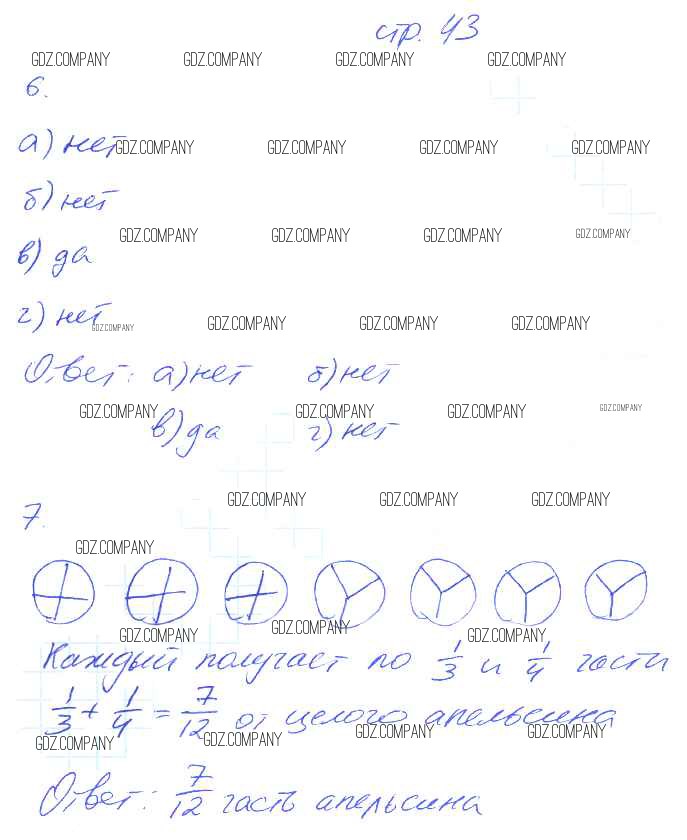 стр. 43
GDZ.COMPANY GDZ.COMPANY GDZ.COMPANY GDZ.COMPANY
6.
а) нет GDZ.COMPANY GDZ.COMPANY GDZ.COMPANY GDZ.COMPANY
б) нет
GDZ.COMPANY GDZ.COMPANY GDZ.COMPANY GDZ.COMPANY
в) да
г) нет GDZ.COMPANY GDZ.COMPANY GDZ.COMPANY GDZ.COMPANY
Ответ: а) нет б) нет
GDZ.COMPANY GDZ.COMPANY GDZ.COMPANY GDZ.COMPANY
в) да г) нет
GDZ.COMPANY GDZ.COMPANY GDZ.COMPANY
7.
GDZ.COMPANY
GDZ.COMPANY GDZ.COMPANY GDZ.COMPANY
Каждый получает по 1/3 и 1/4 части
1/3 + 1/4 = 7/12 от целого апельсина
GDZ.COMPANY GDZ.COMPANY GDZ.COMPANY GDZ.COMPANY
Ответ: 7/12 часть апельсина